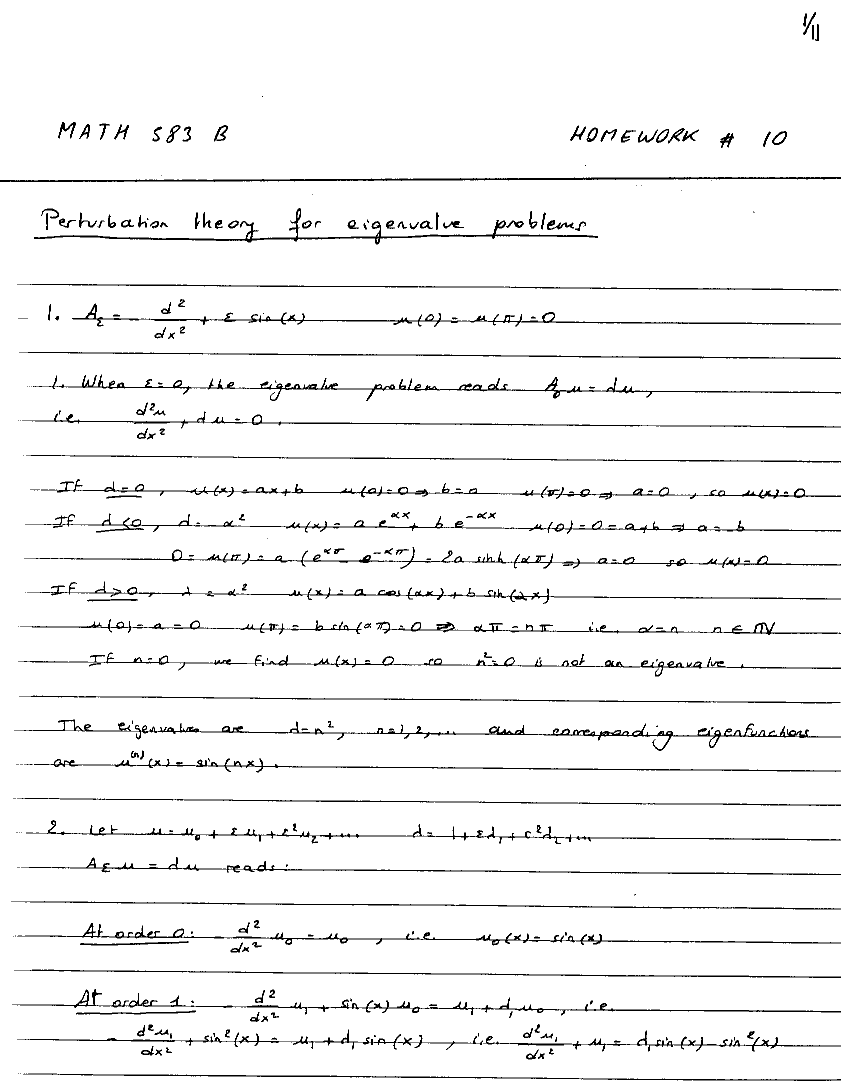 1/11
MATH 583 B HOMEWORK # 10
Perturbation theory for eigenvalue problems
1. A_ε = - d²/dx² + ε sin(x) u(0) = u(π) = 0
1. When ε=0, the eigenvalue problem reads A₀u = λu,
i.e. d²u/dx² + λu = 0.
If λ=0, u(x)=ax+b u(0)=0 ⇒ b=0 u(π)=0 ⇒ a=0, so u(x)=0
If λ<0, λ=-α² u(x)=a e^{αx} + b e^{-αx} u(0)=0=a+b ⇒ a=-b
0=u(π)=a (e^{απ} - e^{-απ}) = 2a sinh(απ) ⇒ a=0 so u(x)=0
If λ>0, λ=α² u(x)=a cos(αx)+b sin(αx)
u(0)=a=0 u(π)=b sin(απ)=0 ⇒ απ=nπ i.e. α=n n∈ℕ
If n=0, we find u(x)=0 so n²=0 is not an eigenvalue.
The eigenvalues are λ=n², n=1,2,... and corresponding eigenfunctions
are u^{(n)}(x)=sin(nx).
2. Let u=u₀+εu₁+ε²u₂+... λ=1+ελ₁+ε²λ₂+...
A_ε u = λu reads:
At order 0: - d²/dx² u₀ = u₀, i.e. u₀(x)=sin(x)
At order 1: - d²/dx² u₁ + sin(x) u₀ = u₁ + λ₁u₀, i.e.
- d²u₁/dx² + sin²(x) = u₁ + λ₁ sin(x), i.e. d²u₁/dx² + u₁ = λ₁ sin(x) - sin²(x)